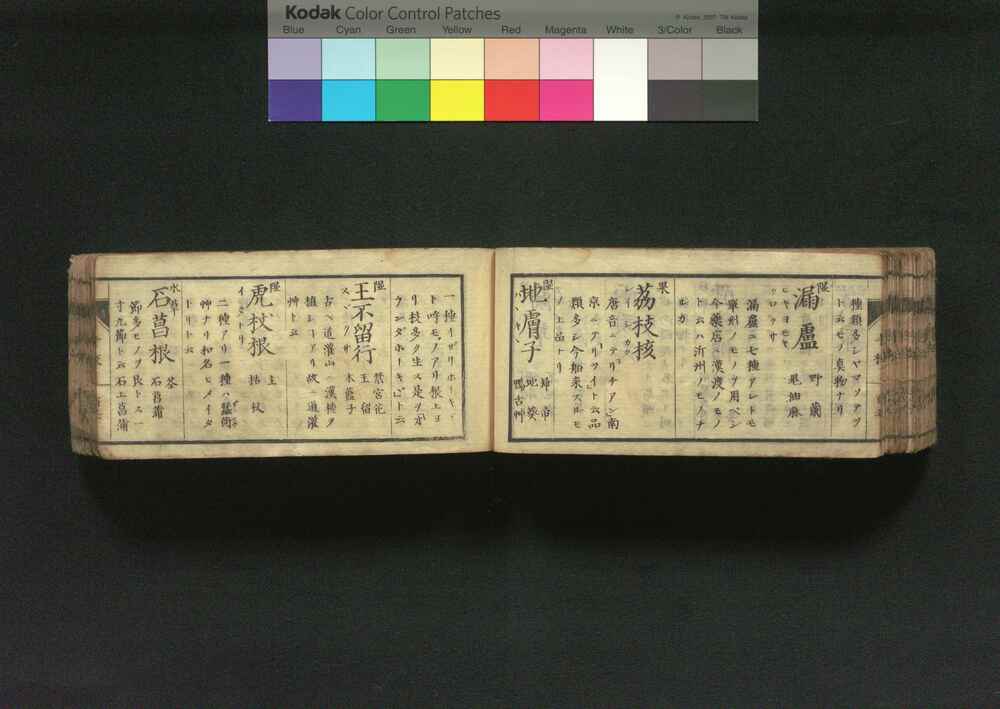 Kodak Color Control Patches
© Kodak, 2007 TM: Kodak
Blue Cyan Green Yellow Red Magenta White 3/Color Black
種類多シヤマアアザ
ト云モノ真物ナリ
隰
漏盧 野蘭 鬼油麻
ヒキヨモキ
クロクサ
漏盧ニ七種アレトモ
單州ノモノヲ用ベシ
今藥店ニ漢渡ノモノ
ト云ハ沂州ノモノナ
ルカ
果
荔枝核
レイシノカク
唐音リテリチアン南
京ニアリツイト云品
類多シ今舶來スルモ
ノ上品ナリ
隰
地膚子 歸帝 地葵 鴨舌艸
ハハキキ
一種イザリホーキヾ
ト呼モノアリ根上ヨ
リ枝多ク生ス是ヲ
ウンダホーキヾト云
隰
王不留行 禁宮花 王留 木藍子
スヾクサ
古ヘ道灌山ニ漢種ヲ
植シコアリ故ニ道灌
艸ト云
隰
虎杖根 主 枯杖
イタトリ
二種アリ一種ハ蔬街
艸ナリ和名ヒメイタ
トリト云
水草
石菖根 荃 石菖蒲
節多モノヲ良トス一
寸九節ト云石上菖蒲